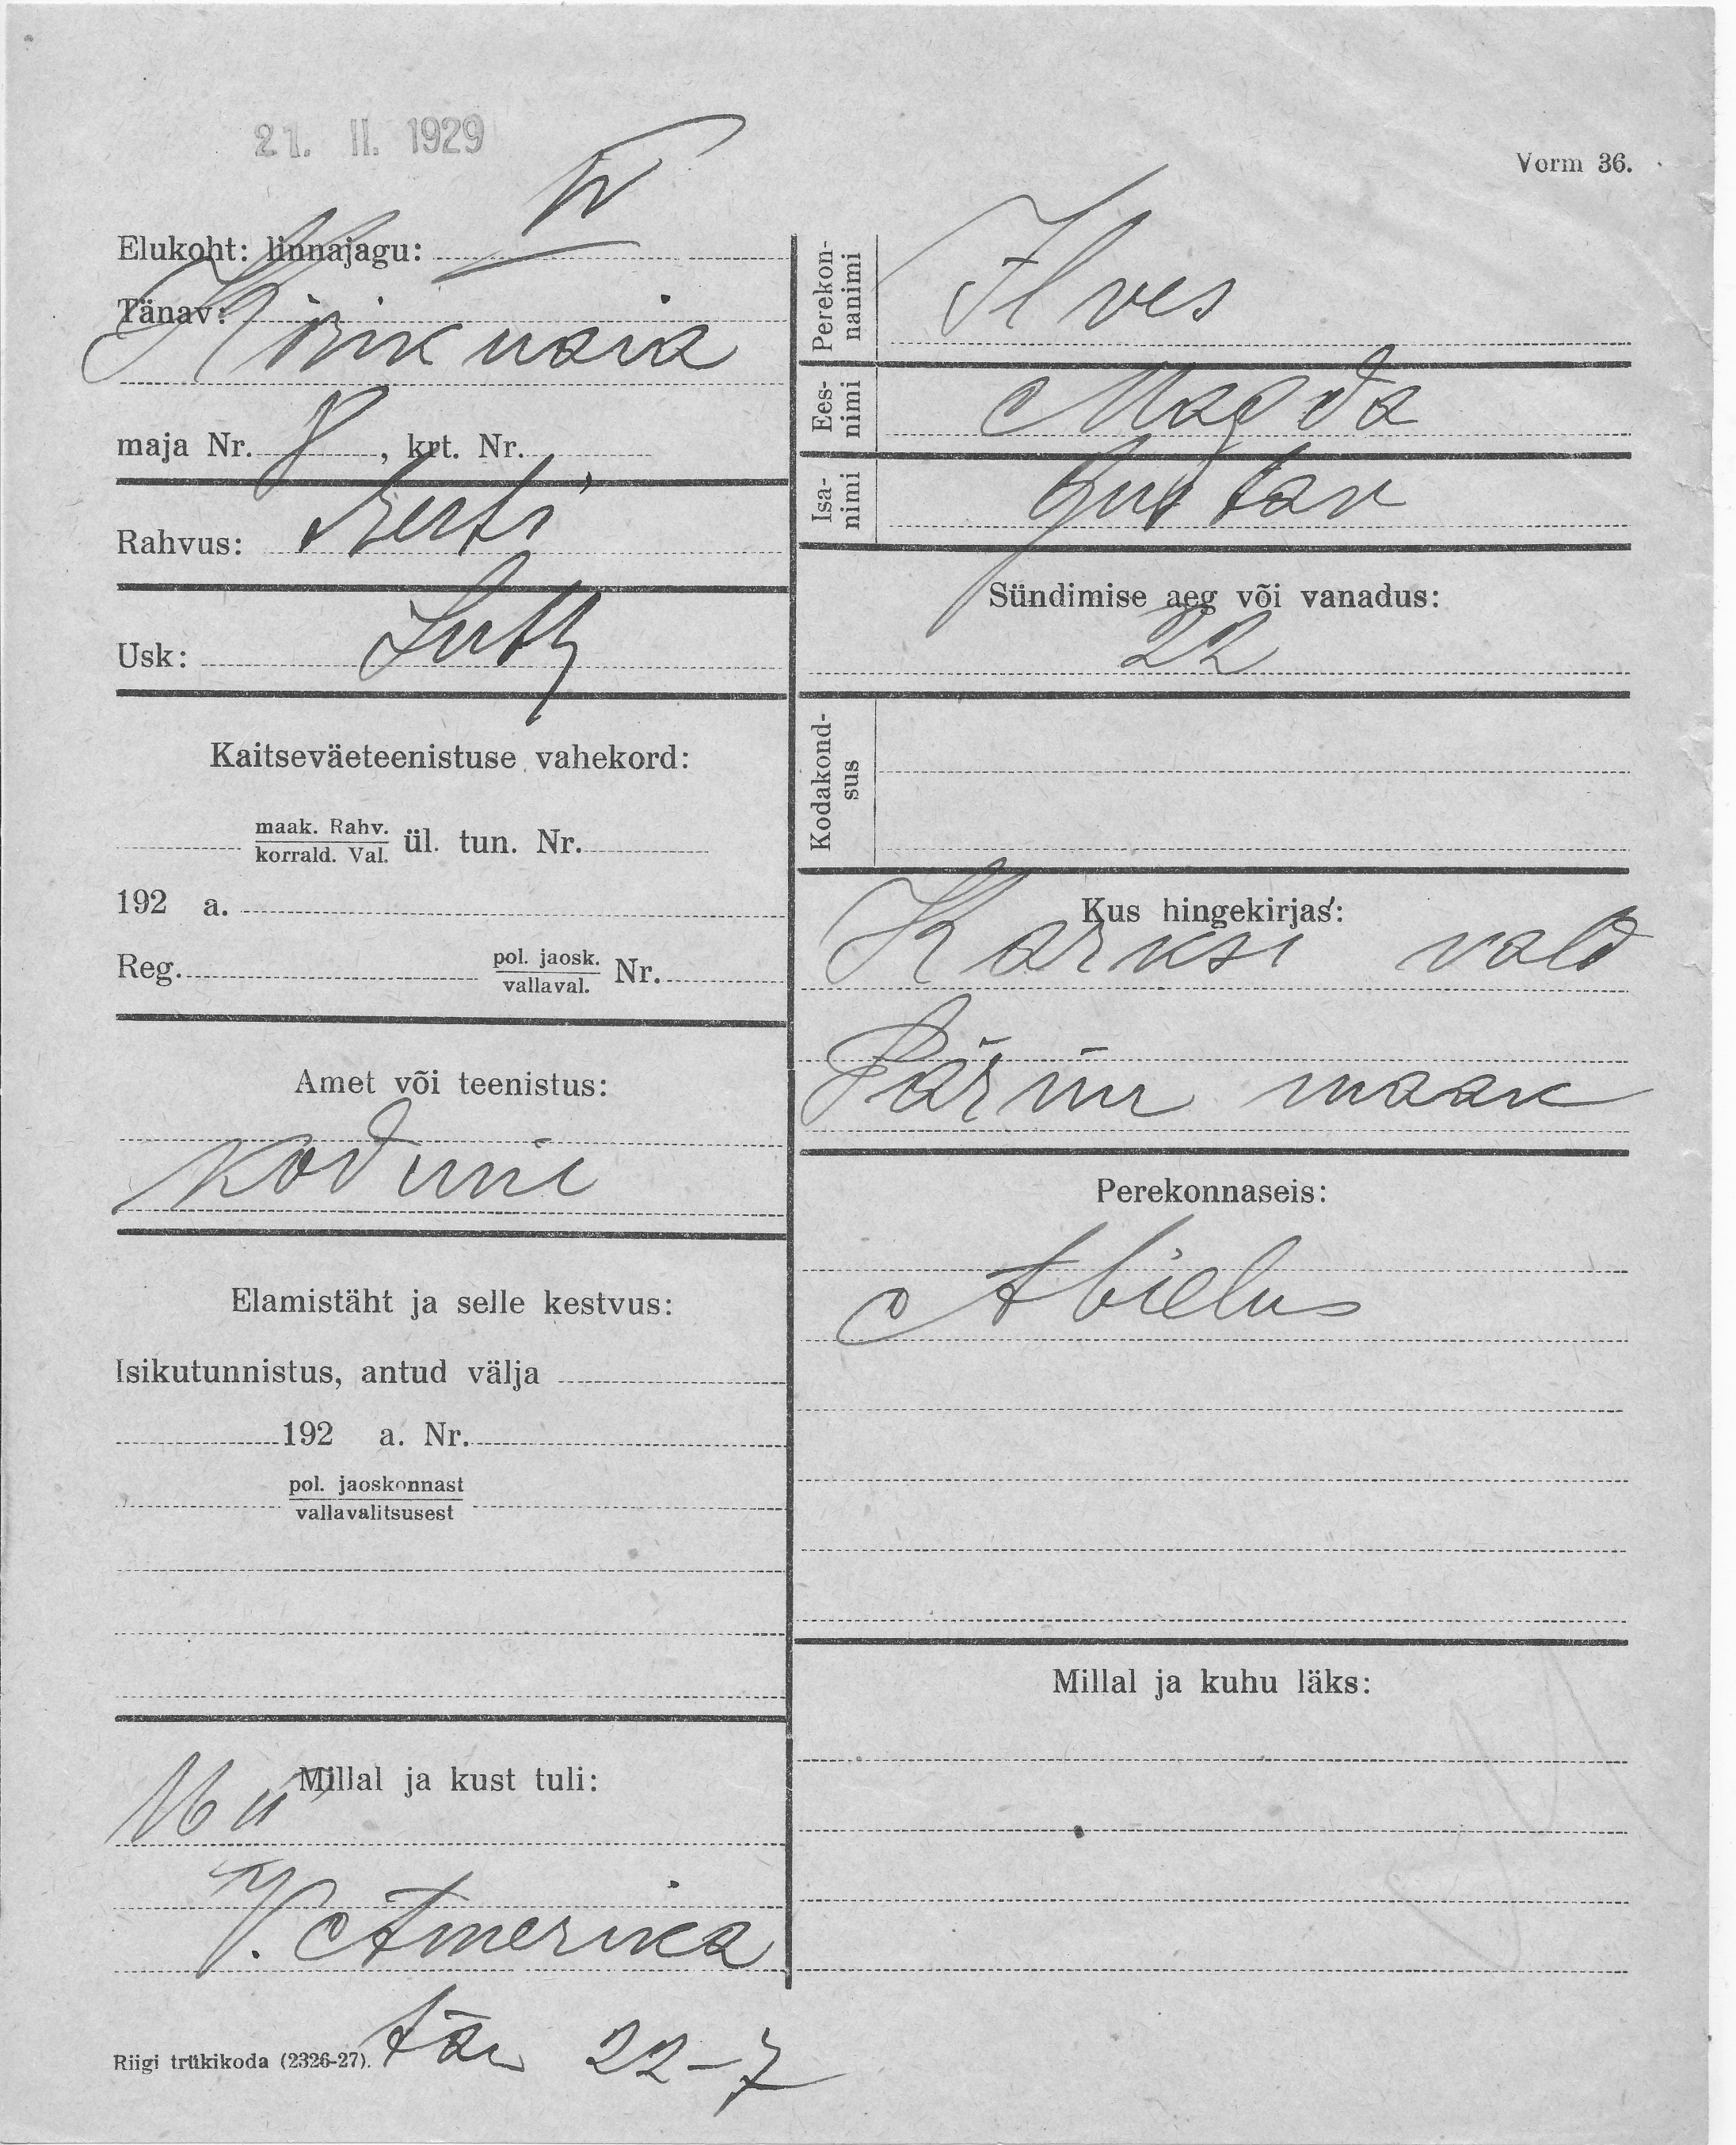 21. II. 1929
Vorm 36.
Elukoht: linnajagu: IV
Tänav:
maja Nr. 8, krt. Nr.
Rahvus: Eesti
Usk: Luth
Kaitseväeteenistuse vahekord:
maak. Rahv.
korrald. Val. ül. tun. Nr.
192 a.
Reg. pol. jaosk.
vallaval. Nr.
Amet või teenistus:
kodune
Elamistäht ja selle kestvus:
Isikutunnistus, antud välja
192 a. Nr.
pol. jaoskonnast
vallavalitsusest
Millal ja kust tuli:
16 II
V. Amerika
tän 22-7
Riigi trükikoda (2326-27).
Perekon-
nanimi
Ilves
Ees-
nimi
Magda
Isa-
nimi
Gustav
Sündimise aeg või vanadus:
22
Kodakond-
sus
Kus hingekirjas:
Karksi vald
Pärnu maak
Perekonnaseis:
Abielus
Millal ja kuhu läks: